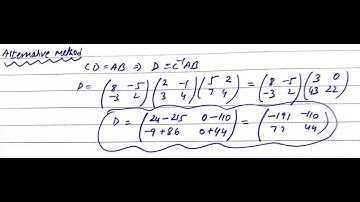 Alternative method
CD = AB ⇒ D = C⁻¹AB
D = (8 -5; -3 2) (2 -1; 3 4) (5 2; 7 4) = (8 -5; -3 2) (3 0; 43 22)
D = (24-215 0-110; -9+86 0+44) = (-191 -110; 77 44)